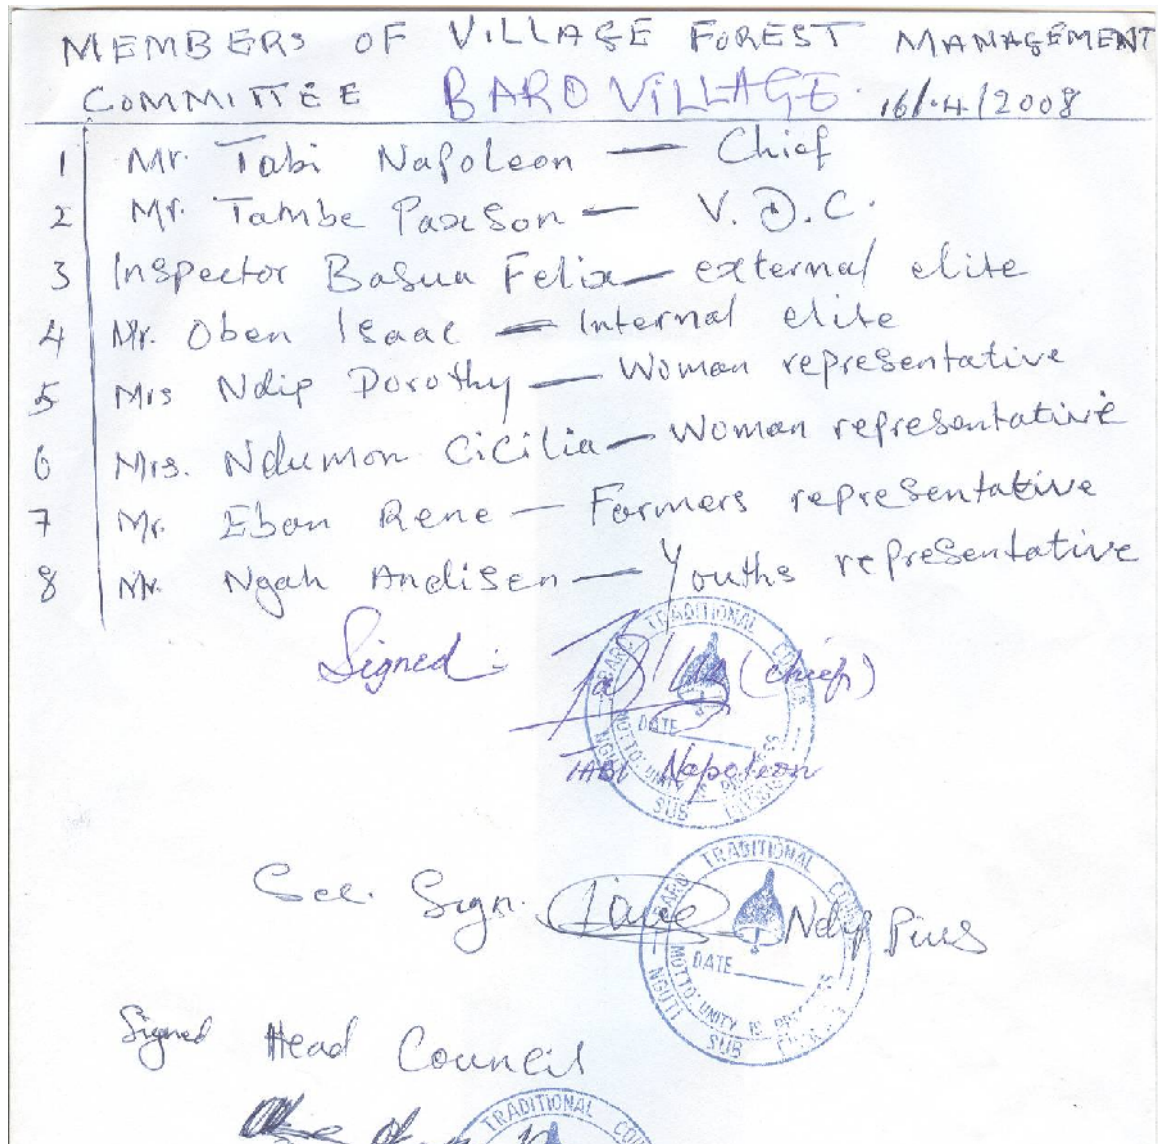 MEMBERS OF VILLAGE FOREST MANAGEMENT
COMMITTEE BARO VILLAGE. 16/4/2008
1 Mr. Tabi Napoleon — Chief
2 Mr. Tambe Paxson — V.D.C.
3 Inspector Basua Felix — external elite
4 Mr. Oben Isaac — Internal elite
5 Mrs Ndip Dorothy — Woman representative
6 Mrs. Ndumon Cicilia — Woman representative
7 Mr. Eban Rene — Farmers representative
8 Mr. Ngah Andisen — Youths representative
Signed: (Chief)
BARO TRADITIONAL COUNCIL
DATE
MOTTO: UNITY IS PROGRESS
NGUTI SUB DIVISION
TABI Napoleon
Sec. Sign. Ndip Pius
BARO TRADITIONAL COUNCIL
DATE
MOTTO: UNITY IS PROGRESS
NGUTI SUB DIVISION
Signed Head Council
TRADITIONAL